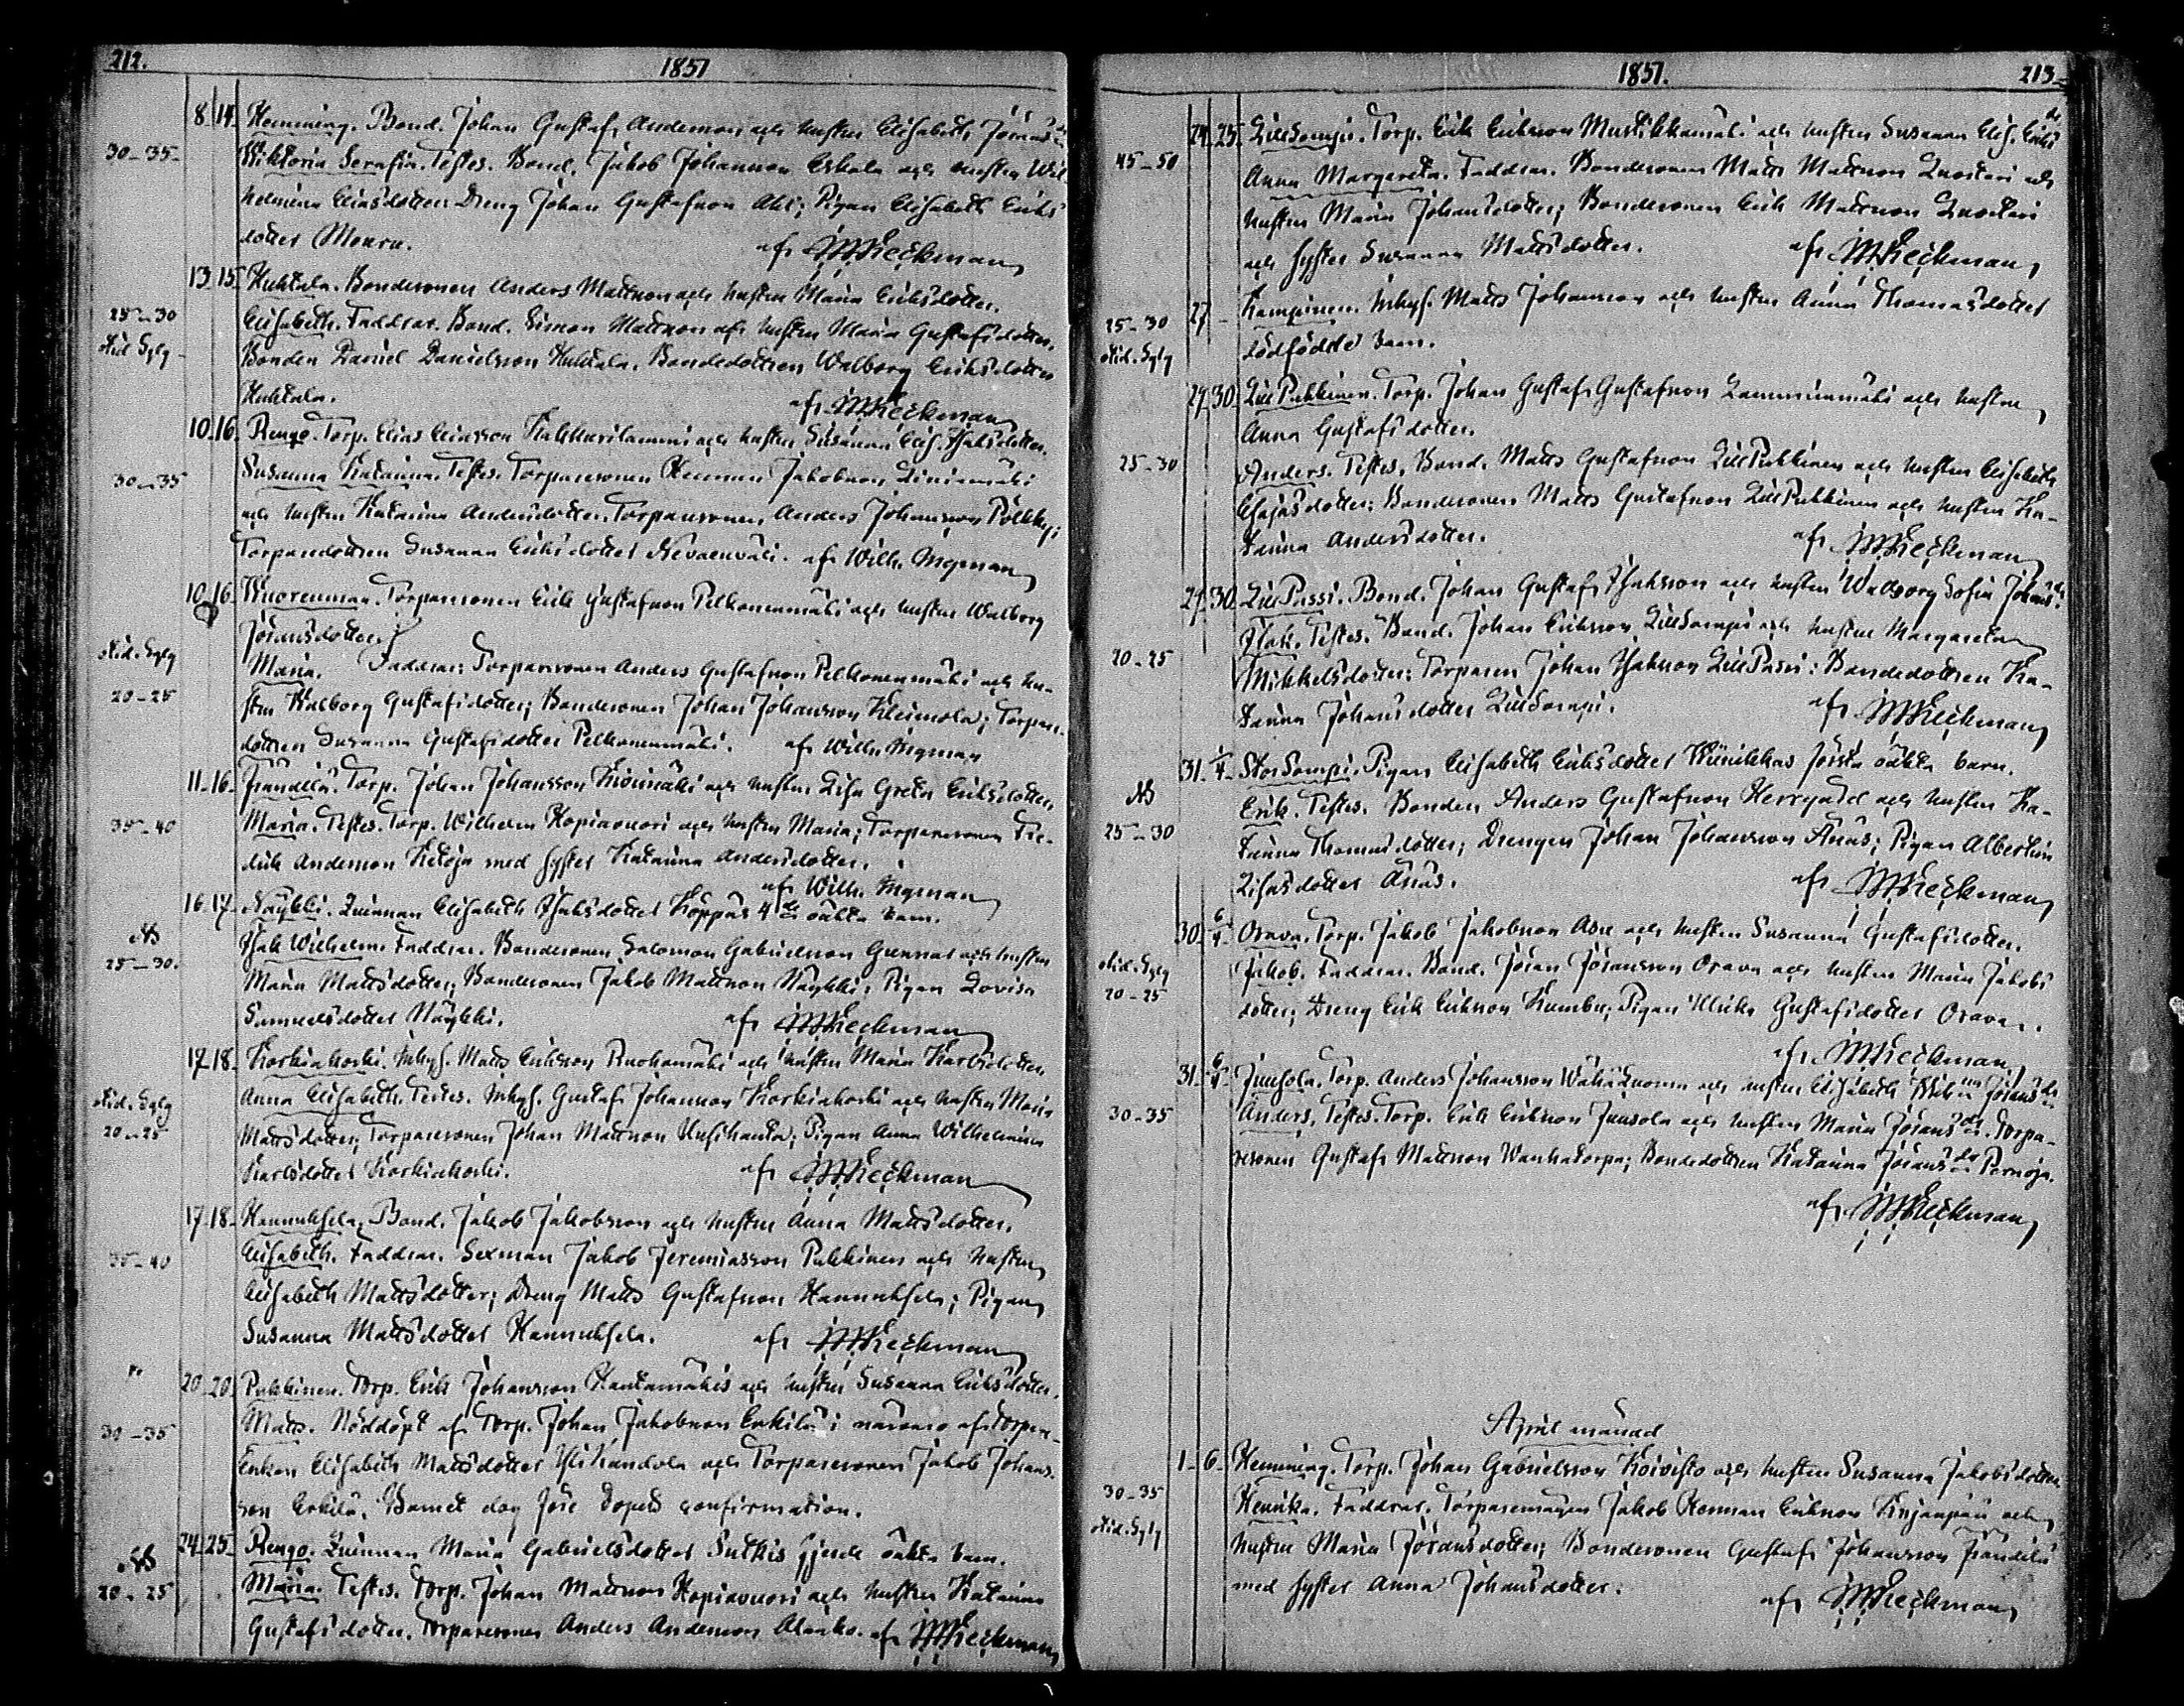 212.
1851
8 14. Hemming. Bond. Johan Gustaf Anderson och hustru Elisabeth Jöransd:r
30-35. Wiktoria Serafia. Testes. Bond. Jakob Johansson Eskola och hustru Wil-
helmina Eliasdotter; Dreng Johan Gustafsson Ahl; Pigan Elisabeth Eriks
dotter Monru. af
13 15. Huhtala. Bondesonen Anders Mattsson och hustru Maria Eriksdotter.
25-30 Elisabeth. Faddrar. Bond. Simon Mattsson och hustru Maria Gustafsdotter.
Bonden Daniel Danielsson Huhtala. Bondedottren Walborg Eriksdotter
Huhtala. af
10. 16. Rengo. Torp. Elias Eliasson och hustru Susanna Elis. Isaksdotter.
30-35 Susanna Katarina. Testes. Torparesonen Herman Jakobsson
och hustru Katarina Andersdotter. Torparesonen Anders Johansson Pölkky;
Torparedottren Susanna Eriksdotter Nevaenväli. af Wilh. Ingman
10. 16. Wuorenmaa. Torparesonen Erik Gustafsson Pelkonenmäki och hustru Walborg
Jöransdotter
Maria. Faddrar: Torparesonen Anders Gustafsson Pelkonenmäki och hu-
20-25 stru Walborg Gustafsdotter; Bondesonen Johan Johansson Kleimola; Torpare-
dottren Susanna Gustafsdotter Pelkonenmäki. af Wilh. Ingman
11. 16. Frändilä. Torp. Johan Johansson Kivimäki och hustru Lisa Greta Eriksdotter
35-40 Maria. Testes. Torp. Wilhelm Kopiavuori och hustru Maria; Torparesonen Fre-
drik Anderson Ketoja med syster Katarina Andersdotter.
af Wilh. Ingman
16 17. Näykki. Qvinnan Elisabeth Isaksdotter Köppäs 4de oäkta barn.
25-30. Isak Wilhelm. Faddrar. Bondesonen Salomon Gabrielsson Gunnar och hustru
Maria Mattsdotter; Bondesonen Jakob Mattsson Näykki; Pigan Lovisa
Samuelsdotter Näykki. af
17. 18. Korkiakoski. Inhys. Matts Eriksson Ruohamäki och hustru Maria Karlsdotter
20-25 Anna Elisabeth. Testes. Inhys. Gustaf Johansson Korkiakoski och hustru Maria
Mattsdotter; Torparesonen Johan Mattsson; Pigan Anna Wilhelmina
Karlsdotter Korkiakoski. af
17. 18. Hannuksela. Bond. Jakob Jakobsson och hustru Anna Mattsdotter.
35-40 Elisabeth. Faddrar. Sexman Jakob Jeremiasson Pukkinen och hustru
Elisabeth Mattsdotter; Dreng Matts Gustafsson Hannuksela; Pigan
Susanna Mattsdotter Hannuksela. af
20. 20. Pukkinen. Torp. Erik Johansson Hautamäkis och hustru Susanna Eriksdotter.
30-35 Matts. Nöddöpt af Torp. Johan Jakobsson Erkilä i närvaro af Torpare-
Enkan Elisabeth Mattsdotter och Torparesonen Jakob Johans-
son Erkilä. Barnet dog före dopets confirmation.
24. 25. Rengo. Qvinnan Maria Gabrielsdotter Sutkis fjerde oäkta barn.
20-25 Maria. Testes. Torp. Johan Mattsson Kopiavuori och hustru Katarina
Gustafsdotter. Torparesonen Anders Anderson Alanko. af
1851.
213.
24. 25. LillSompi. Torp. Erik Eriksson Mustikkamäki och hustru Susanna Elis. Eriksdr
45-50 Anna Margareta. Faddrar. Bondesonen Matts Mattsson Luostari och
hustru Maria Johansdotter; Bondesonen Erik Mattsson Luostari
och syster Susanna Mattsdotter. af
25-30 27. Kampinen. Inhys. Matts Johansson och hustru Anna Thomasdotter
dödfödde barn.
29. 30. LillPukkinen. Torp. Johan Gustaf Gustafsson Lamminmäki och hustru
Anna Gustafsdotter.
25-30 Anders. Testes. Bond. Matts Gustafsson LillPukkinen och hustru Elisabeth
Esajasdotter; Bondesonen Matts Gustafsson LillPukkinen och hustru Ka-
tarina Andersdotter. af
29. 30. LillPassi. Bond. Johan Gustaf Isaksson och hustru Walborg Sofia Johansdr.
20-25 Isak. Testes. Bond. Johan Eriksson LillSompi och hustru Margareta
Mikkelsdotter; Torparen Johan Isaksson LillPassi; Bondedottren Ka-
tarina Johansdotter LillSompi. af
31. 1/4. StorSompi. Pigan Elisabeth Eriksdotter första oäkta barn.
25-30 Erik. Testes. Bonden Anders Gustafsson Herrgård och hustru Ka-
tarina Thomasdotter; Drengen Johan Johansson Ånäs; Pigan Albertina
Lisasdotter Ånäs. af
30. 6/4. Orava. Torp. Jakob Jakobsson Asu och hustru Susanna Gustafsdotter.
20-25 Jakob. Faddrar. Bond. Jöran Jöransson Orava och hustru Maria Jakobs
dotter; Dreng Erik Eriksson Kumbu; Pigan Ulrika Gustafsdotter Orava.
af
31. 6/4. Juusola. Torp. Anders Johansson Wähäluoma och hustru Elisabeth Wilhna Jöransdr
30-35 Anders. Testes. Torp. Erik Eriksson Juusola och hustru Maria Jöransdr. Torpa-
resonen Gustaf Mattsson Wanhatorpa; Bondedottren Katarina Jöransdr Pernoja.
af
April månad
1. 6. Hemming. Torp. Johan Gabrielsson Koivisto och hustru Susanna Jakobsdotter
30-35 Henrika. Faddrar. Torparemågen Jakob Herman Eriksson och
hustru Maria Jöransdotter; Bondesonen Gustaf Johansson Frändilä
med syster Anna Johansdotter. af